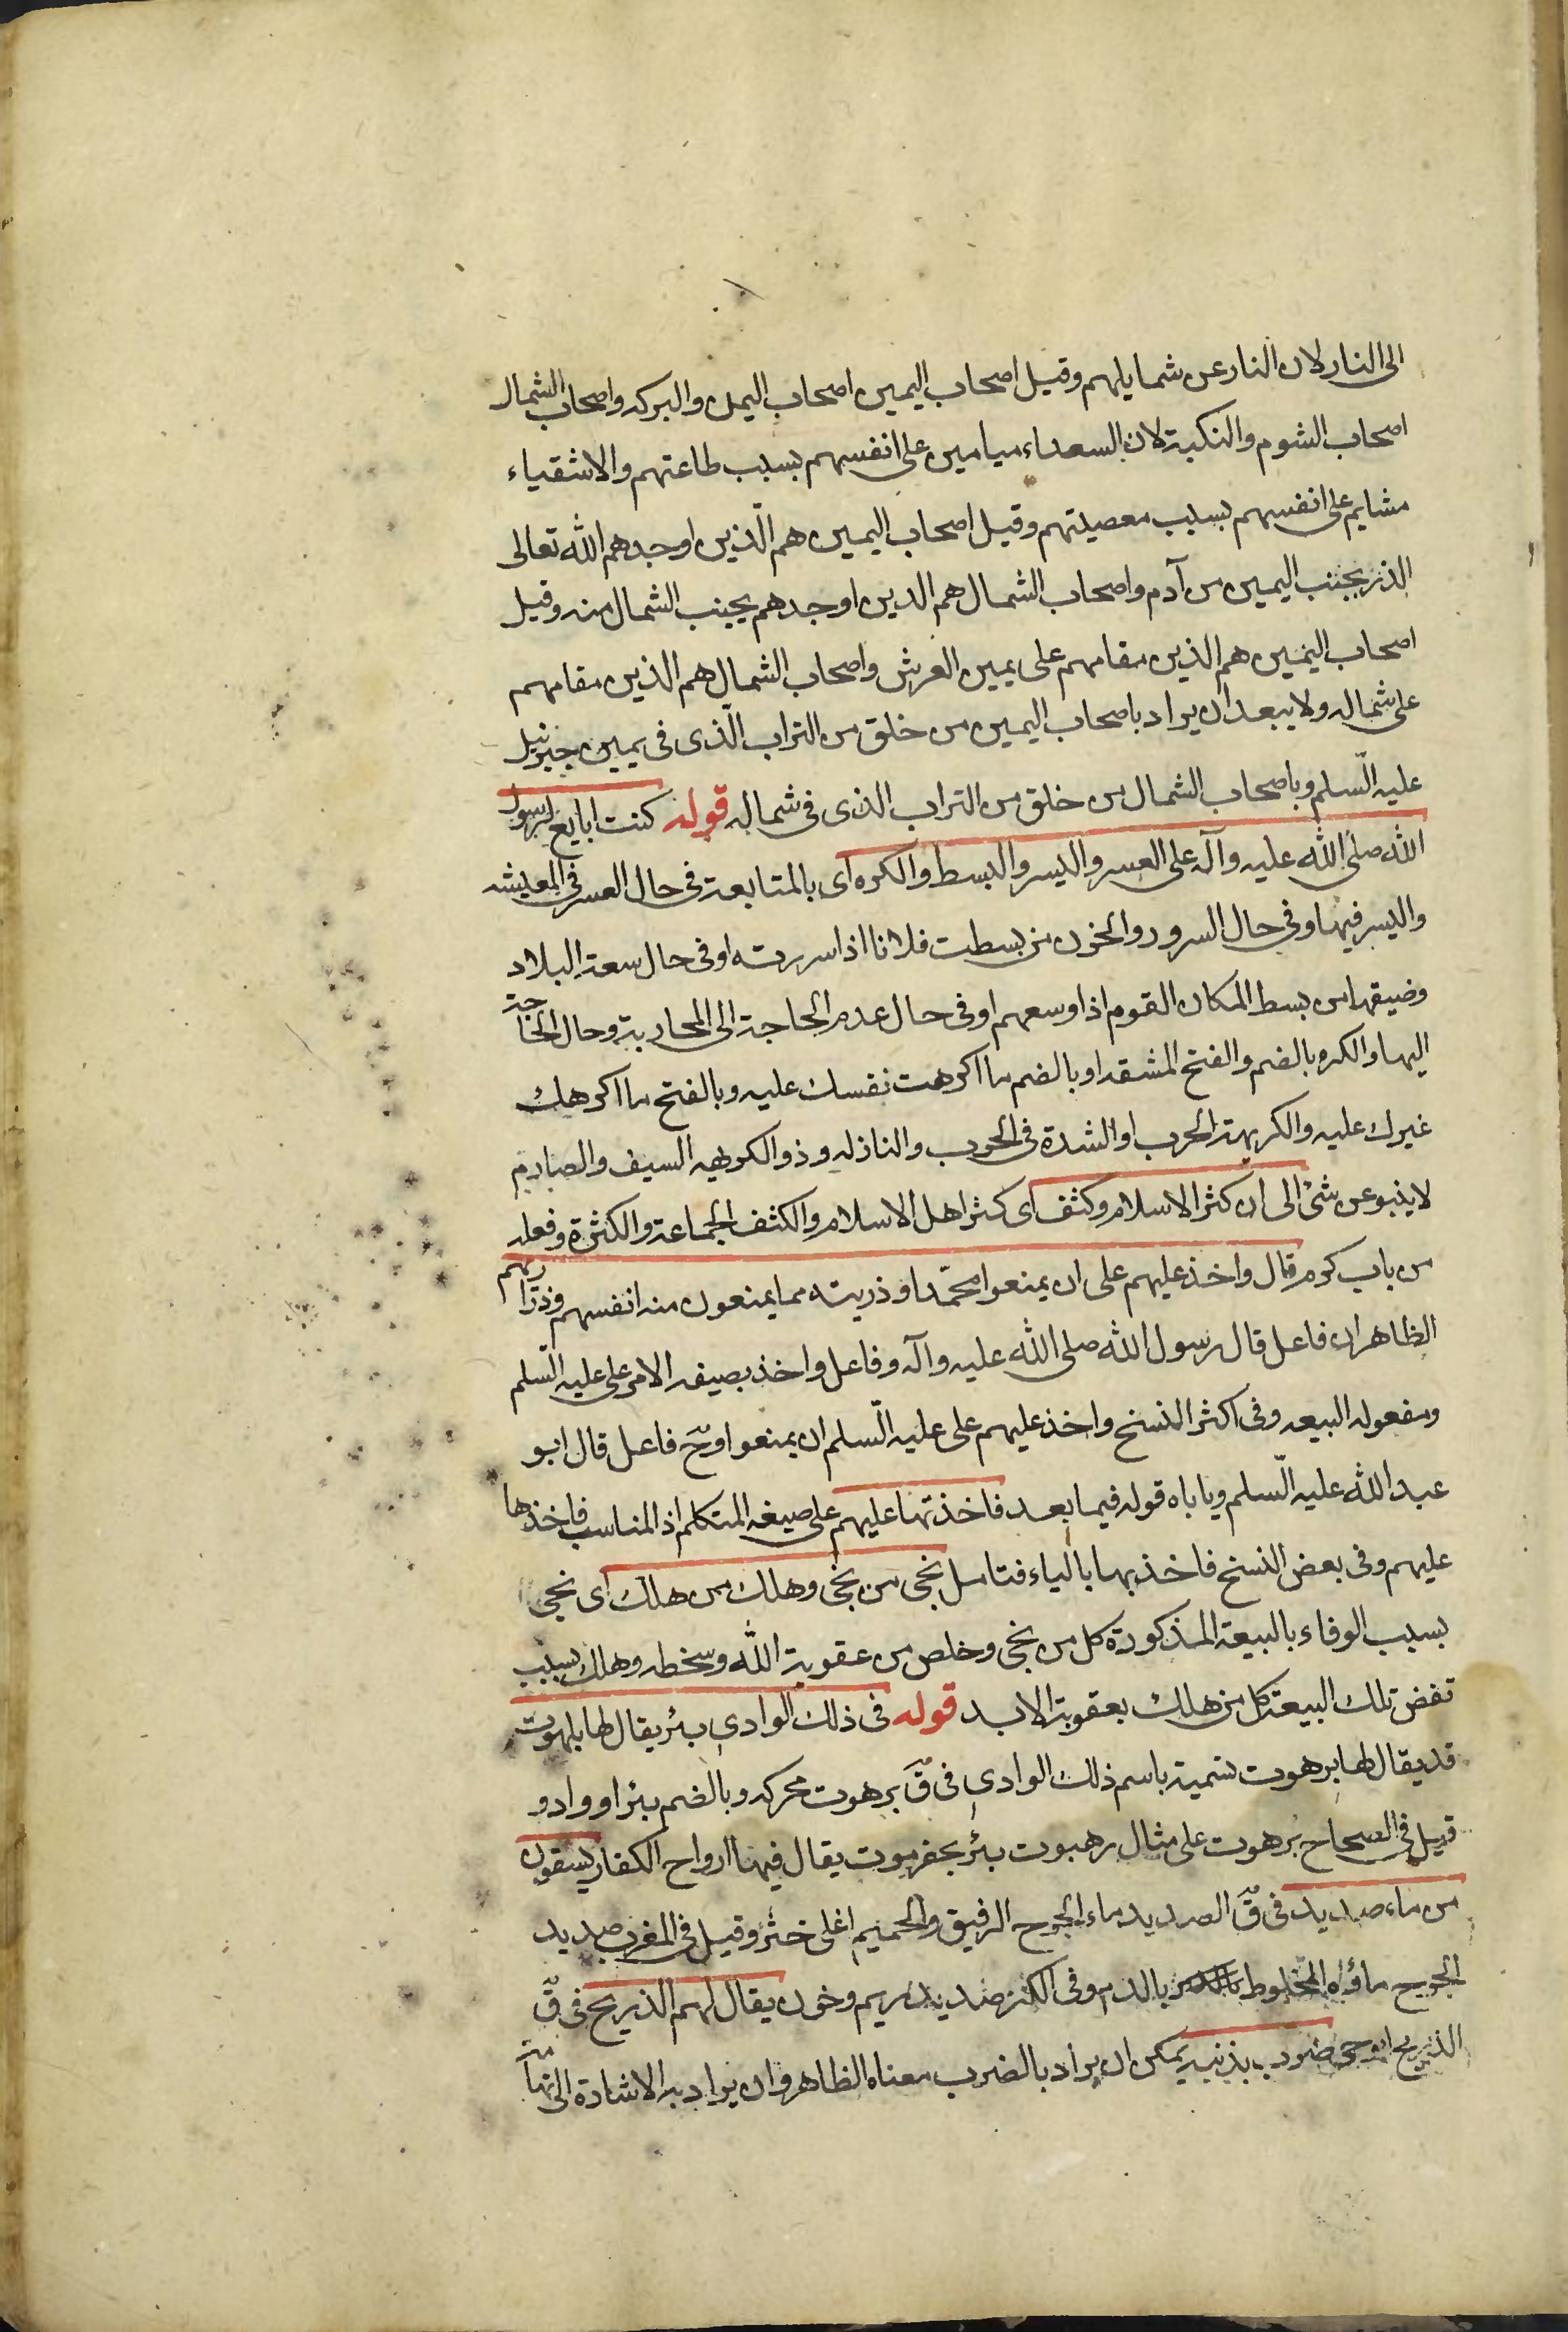 الى النار لان النار عن شمايلهم وقيل اصحاب اليمين اصحاب اليمن والبركه واصحاب الشمال
اصحاب الشوم والنكبة لان السعداء ميامين على انفسهم بسبب طاعتهم والاشقياء
مشايم على انفسهم بسبب معصيتهم وقيل اصحاب اليمين هم الّذين اوجدهم الله تعالى
الذر بجنب اليمين من آدم واصحاب الشمال هم الدين اوجدهم بجنب الشمال منه وقيل
اصحاب اليمين هم الذين مقامهم على يمين العرش واصحاب الشمال هم الذين مقامهم
على شماله ولا يبعد ان يراد باصحاب اليمين من خلق من التراب الّذى فى يمين جبرئيل
عليه السّلم وباصحاب الشمال من خلق من التراب الذى فى شماله قوله كنت ابايع لرسول
الله صلى الله عليه وآله على العسر واليسر والبسط والكره اى بالمتابعة فى حال العسر فى المعيشه
واليسر فيها وفى حال السرور والحزن من بسطت فلانا اذا سررته او فى حال سعة البلاد
وضيقها من بسط المكان القوم اذا وسعهم او فى حال عدم الحاجة الى المحاربة وحال الحاجة
اليها والكره بالضم والفتح المشقه او بالضم ما اكرهت نفسك عليه وبالفتح ما اكرهك
غيرك عليه والكريهة الحرب او الشدة فى الحرب والنازله وذو الكريهه السيف والصارم
لا ينبو عن شئ الى ان كثر الاسلام وكثف اى كثر اهل الاسلام والكثف الجماعة والكثرة وفعله
من باب كرم قال واخذ عليهم على ان يمنعوا محمّدا وذريته مما يمنعون منه انفسهم وذراريهم
الظاهر ان فاعل قال رسول الله صلى الله عليه وآله وفاعل واخذ بصيغه الامر على عليه السّلم
ومفعوله البيعه وفى اكثر النسخ واخذ عليهم على عليه السّلم ان يمنعوا وح فاعل قال ابو
عبد الله عليه السّلم وياباه قوله فيما بعد فاخذتها عليهم على صيغه المتكلم اذ المناسب فاخذها
عليهم وفى بعض النسخ فاخذ بها بالياء فتامل نجى من نجى وهلك من هلك اى نجى
بسبب الوفاء بالبيعة المذكورة كل من نجى وخلص من عقوبة الله وسخطه وهلك بسبب
نقض تلك البيعة كل من هلك بعقوبة الابد قوله فى ذلك الوادى بئر يقال لها بلهوت
قد يقال لها برهوت تسمية باسم ذلك الوادى فى ق برهوت محركه وبالضم بئر او واد و
قيل فى الصحاح برهوت على مثال رهبوت بئر بحضرموت يقال فيها ارواح الكفار يسقون
من ماء صديد فى ق الصديد ماء الجرح الرقيق والحميم اغلى حتى خثر وقيل فى المغرب صديد
الجرح ماؤه المختلوط بالدم وفى الكنز صديد ريم وخون يقال لهم الذريح فى ق
الذريح ابو حى ضرب بذنبه يمكن ان يراد بالضرب معناه الظاهر وان يراد به الاشارة الى